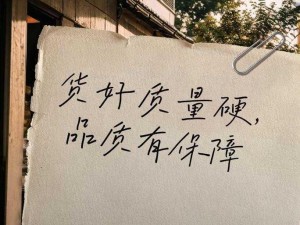 货好质量硬，
品质有保障